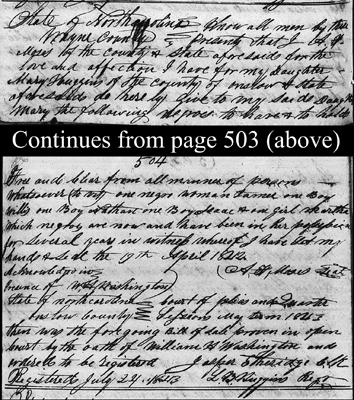 State of North Carolina Know all men by these
Wayne County presents that I
Moses of the county & state aforesaid for the
love and affection I have for my Daughter
Mary Huggins of the county of onslow & state
aforesaid do hereby give to my said Daughter
Mary the following negroes to have & to hold
Continues from page 503 (above)
504
free and clear from all manner of persons
whatsoever (to wit) one negro woman one Boy
one Boy Nathan one Boy Isaac & one girl Martha
which negroes are now and have been in her possession
for several years in witness whereof I have set my
hand & seal the 19th April 1822
Acknowledge in Seal
presence of Wm Washington
State of north carolina court of pleas and quarter
onslow County Sessions May term 1823
then was the foregoing Bill of sale proven in open
court by the oath of William Washington and
ordered to be registered Jasper Etheridge
Registered July 24 Huggins Regr